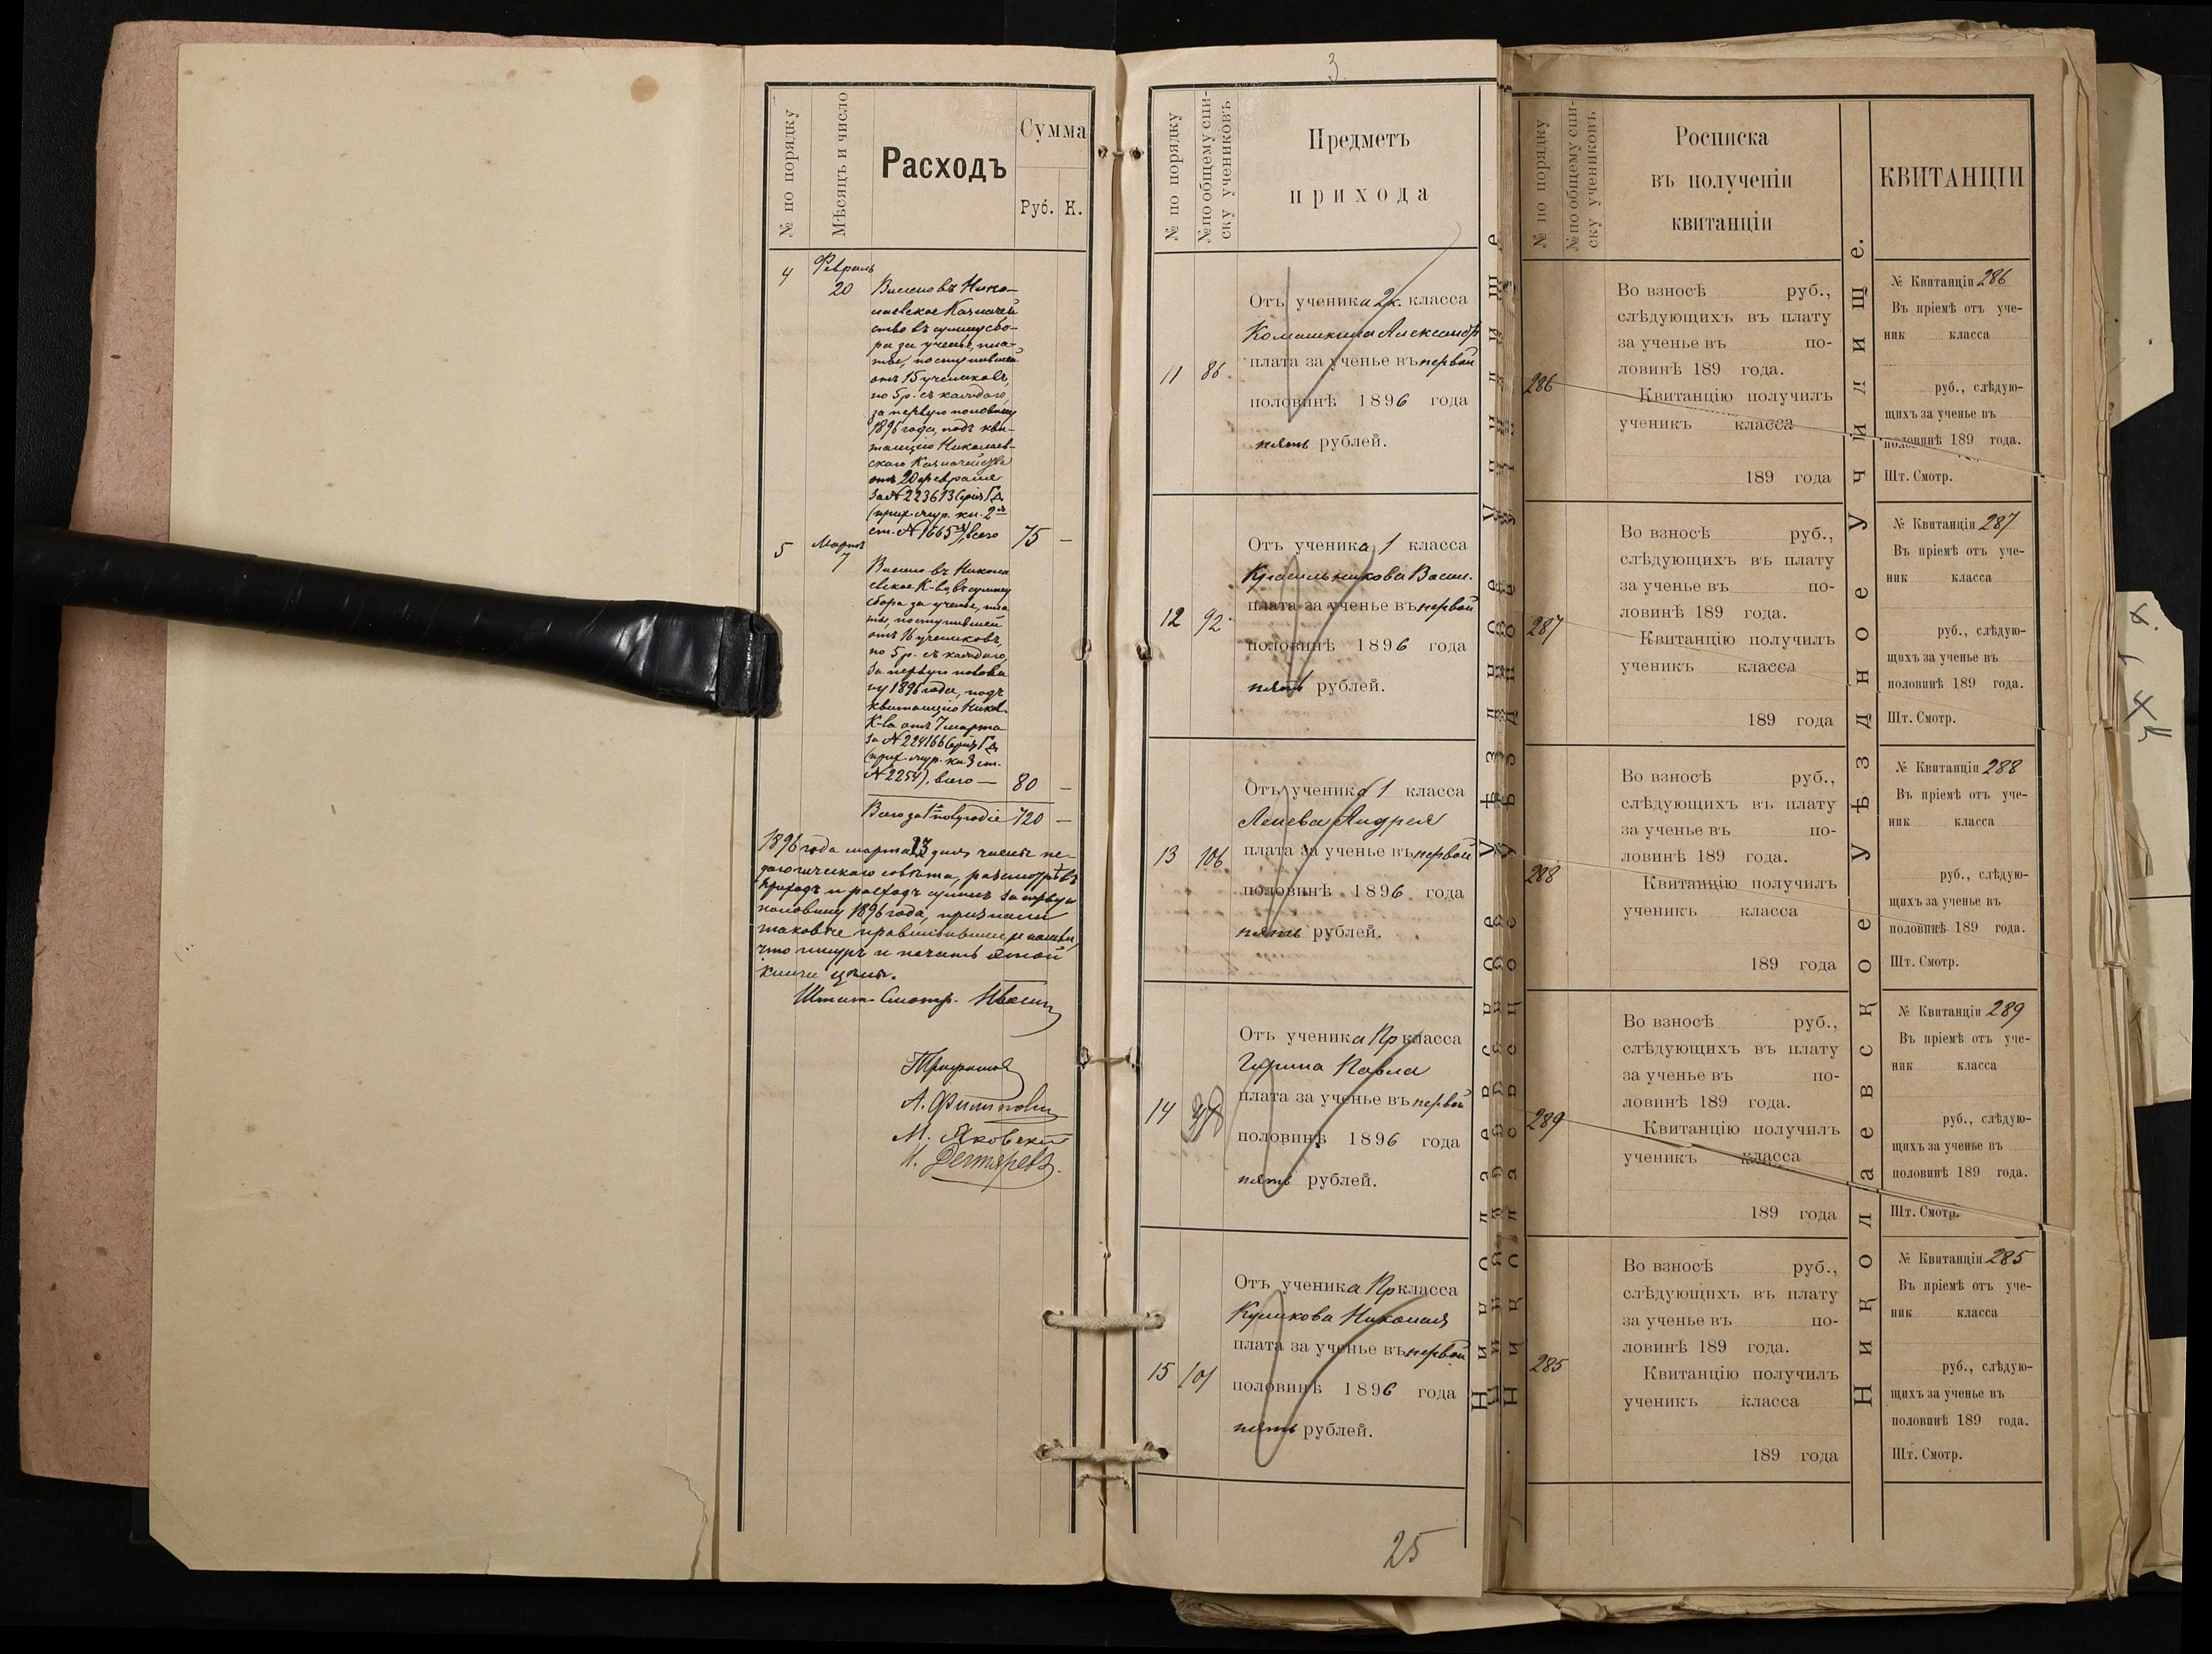 № по порядку
Мѣсяцъ и число
Расходъ
Сумма
Руб. К.
4
Февраль
20
Внесено въ Нико-
лаевское Казначей
ство въ сумму сбо-
ра за ученье, пла-
ты, поступившей
отъ 15 учениковъ,
по 5 р. съ каждаго,
за первую половину
1896 года, подъ кви-
танцію Николаев-
скаго Казначейства
отъ 20 февраля
за № 223613 Серія ГД
(прих. жур. кн. 2
ст. № 1665), всего 75 —
5
Марта
7
Внесено въ Никола
евское К-во, въ сумму
сбора за ученье, пла
ты, поступившей
отъ 16 учениковъ,
по 5 р. съ каждаго,
за первую полови
ну 1896 года, подъ
квитанцію Никол.
К-ва отъ 7 марта
за № 224166 Серія ГД
(прих. жур. кн 3 ст.
№ 2254), всего — 80 —
Всего за 1 полугодіе 720 —
1896 года марта 13 дня члены пе-
дагогическаго совѣта, разсмотрѣвъ
приходъ и расходъ суммъ за первую
половину 1896 года, признали
таковые правильными и нашли,
что шнуръ и печать этой
книги цѣлы.
Штат. Смотр.
А. Филипповъ
М. Яковскій
Дегтяревъ.
3
№ по порядку
№ по общему спи-
ску учениковъ
Предметъ
прихода
11 86
Отъ ученика 2 к. класса
Комашкина Александр
плата за ученье въ первой
половинѣ 1896 года
пять рублей.
12 92
Отъ ученика 1 класса
Красильникова Васил.
плата за ученье въ первой
половинѣ 1896 года
пять рублей.
13 106
Отъ ученика 1 класса
Алиева Андрея
плата за ученье въ первой
половинѣ 1896 года
пять рублей.
14
Отъ ученика Пр класса
Гирина Павла
плата за ученье въ первой
половинѣ 1896 года
пять рублей.
15 101
Отъ ученика Пр класса
Куликова Николая
плата за ученье въ первой
половинѣ 1896 года
пять рублей.
25
№ по порядку
№ по общему спи-
ску учениковъ
Росписка
въ полученіи
квитанціи
286
Во взносѣ руб.,
слѣдующихъ въ плату
за ученье въ по-
ловинѣ 189 года.
Квитанцію получилъ
ученикъ класса
189 года
287
Во взносѣ руб.,
слѣдующихъ въ плату
за ученье въ по-
ловинѣ 189 года.
Квитанцію получилъ
ученикъ класса
189 года
288
Во взносѣ руб.,
слѣдующихъ въ плату
за ученье въ по-
ловинѣ 189 года.
Квитанцію получилъ
ученикъ класса
189 года
289
Во взносѣ руб.,
слѣдующихъ въ плату
за ученье въ по-
ловинѣ 189 года.
Квитанцію получилъ
ученикъ класса
189 года
285
Во взносѣ руб.,
слѣдующихъ въ плату
за ученье въ по-
ловинѣ 189 года.
Квитанцію получилъ
ученикъ класса
189 года
Николаевское Уѣздное Училище.
КВИТАНЦІИ
№ Квитанціи 286
Въ пріемѣ отъ уче-
ник класса
руб., слѣдую-
щихъ за ученье въ
половинѣ 189 года.
Шт. Смотр.
№ Квитанціи 287
Въ пріемѣ отъ уче-
ник класса
руб., слѣдую-
щихъ за ученье въ
половинѣ 189 года.
Шт. Смотр.
№ Квитанціи 288
Въ пріемѣ отъ уче-
ник класса
руб., слѣдую-
щихъ за ученье въ
половинѣ 189 года.
Шт. Смотр.
№ Квитанціи 289
Въ пріемѣ отъ уче-
ник класса
руб., слѣдую-
щихъ за ученье въ
половинѣ 189 года.
Шт. Смотр.
№ Квитанціи 285
Въ пріемѣ отъ уче-
ник класса
руб., слѣдую-
щихъ за ученье въ
половинѣ 189 года.
Шт. Смотр.